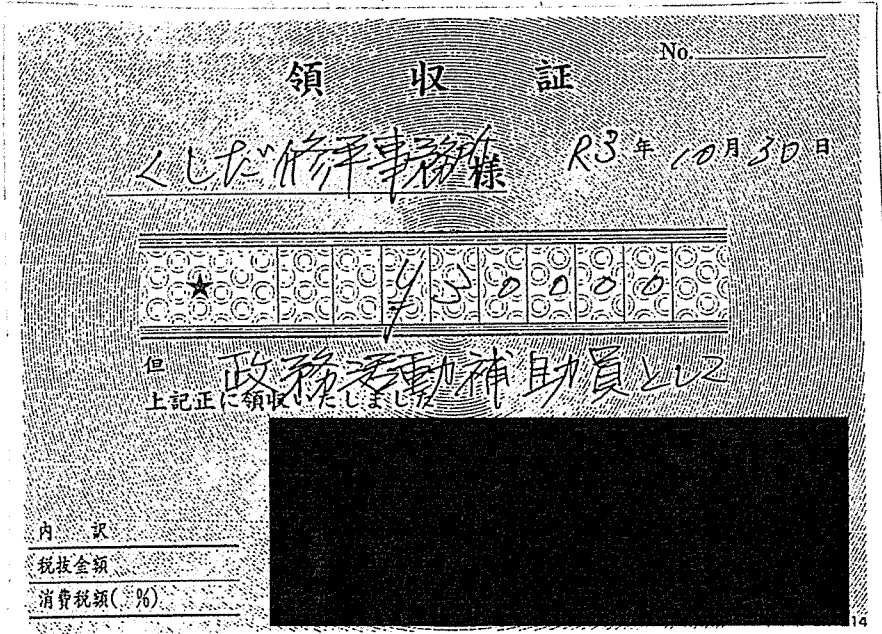 No.
領収証
くしだ修平事務所様 R3年10月30日
★ ¥30000
但 政務活動補助員として
上記正に領収いたしました
内訳
税抜金額
消費税額( %)
14